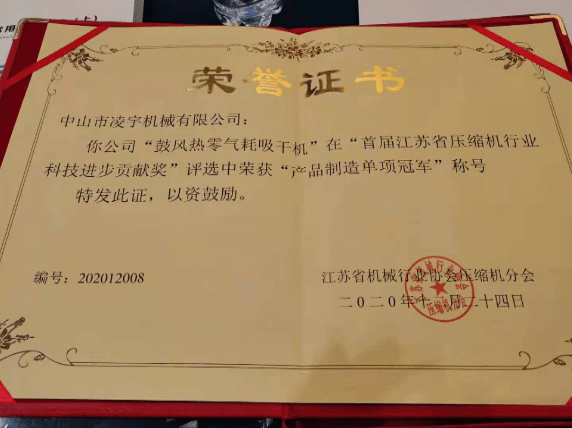 荣誉证书
中山市凌宇机械有限公司：
你公司“鼓风热零气耗吸干机”在“首届江苏省压缩机行业
科技进步贡献奖”评选中荣获“产品制造单项冠军”称号
特发此证，以资鼓励。
编号：202012008
江苏省机械行业协会压缩机分会
二０二０年十二月二十四日
压缩机分会